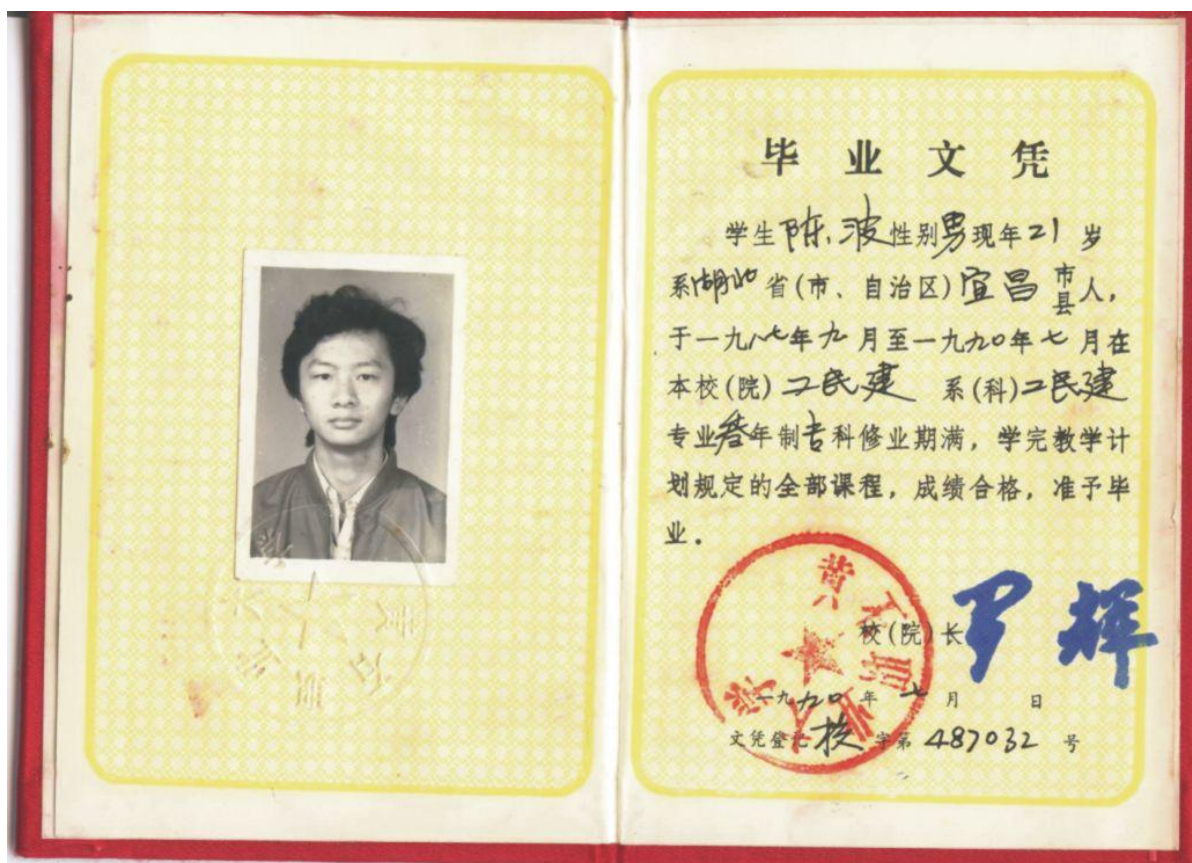 毕业文凭
学生陈波性别男现年21岁
系湖北省(市、自治区)宜昌市县人，
于一九八七年九月至一九九〇年七月在
本校(院)工民建 系(科)工民建
专业叁年制专科修业期满，学完教学计
划规定的全部课程，成绩合格，准予毕
业。
黄石职业大学
校(院)长 罗辉
一九九〇年七月 日
文凭登记校字第487032号